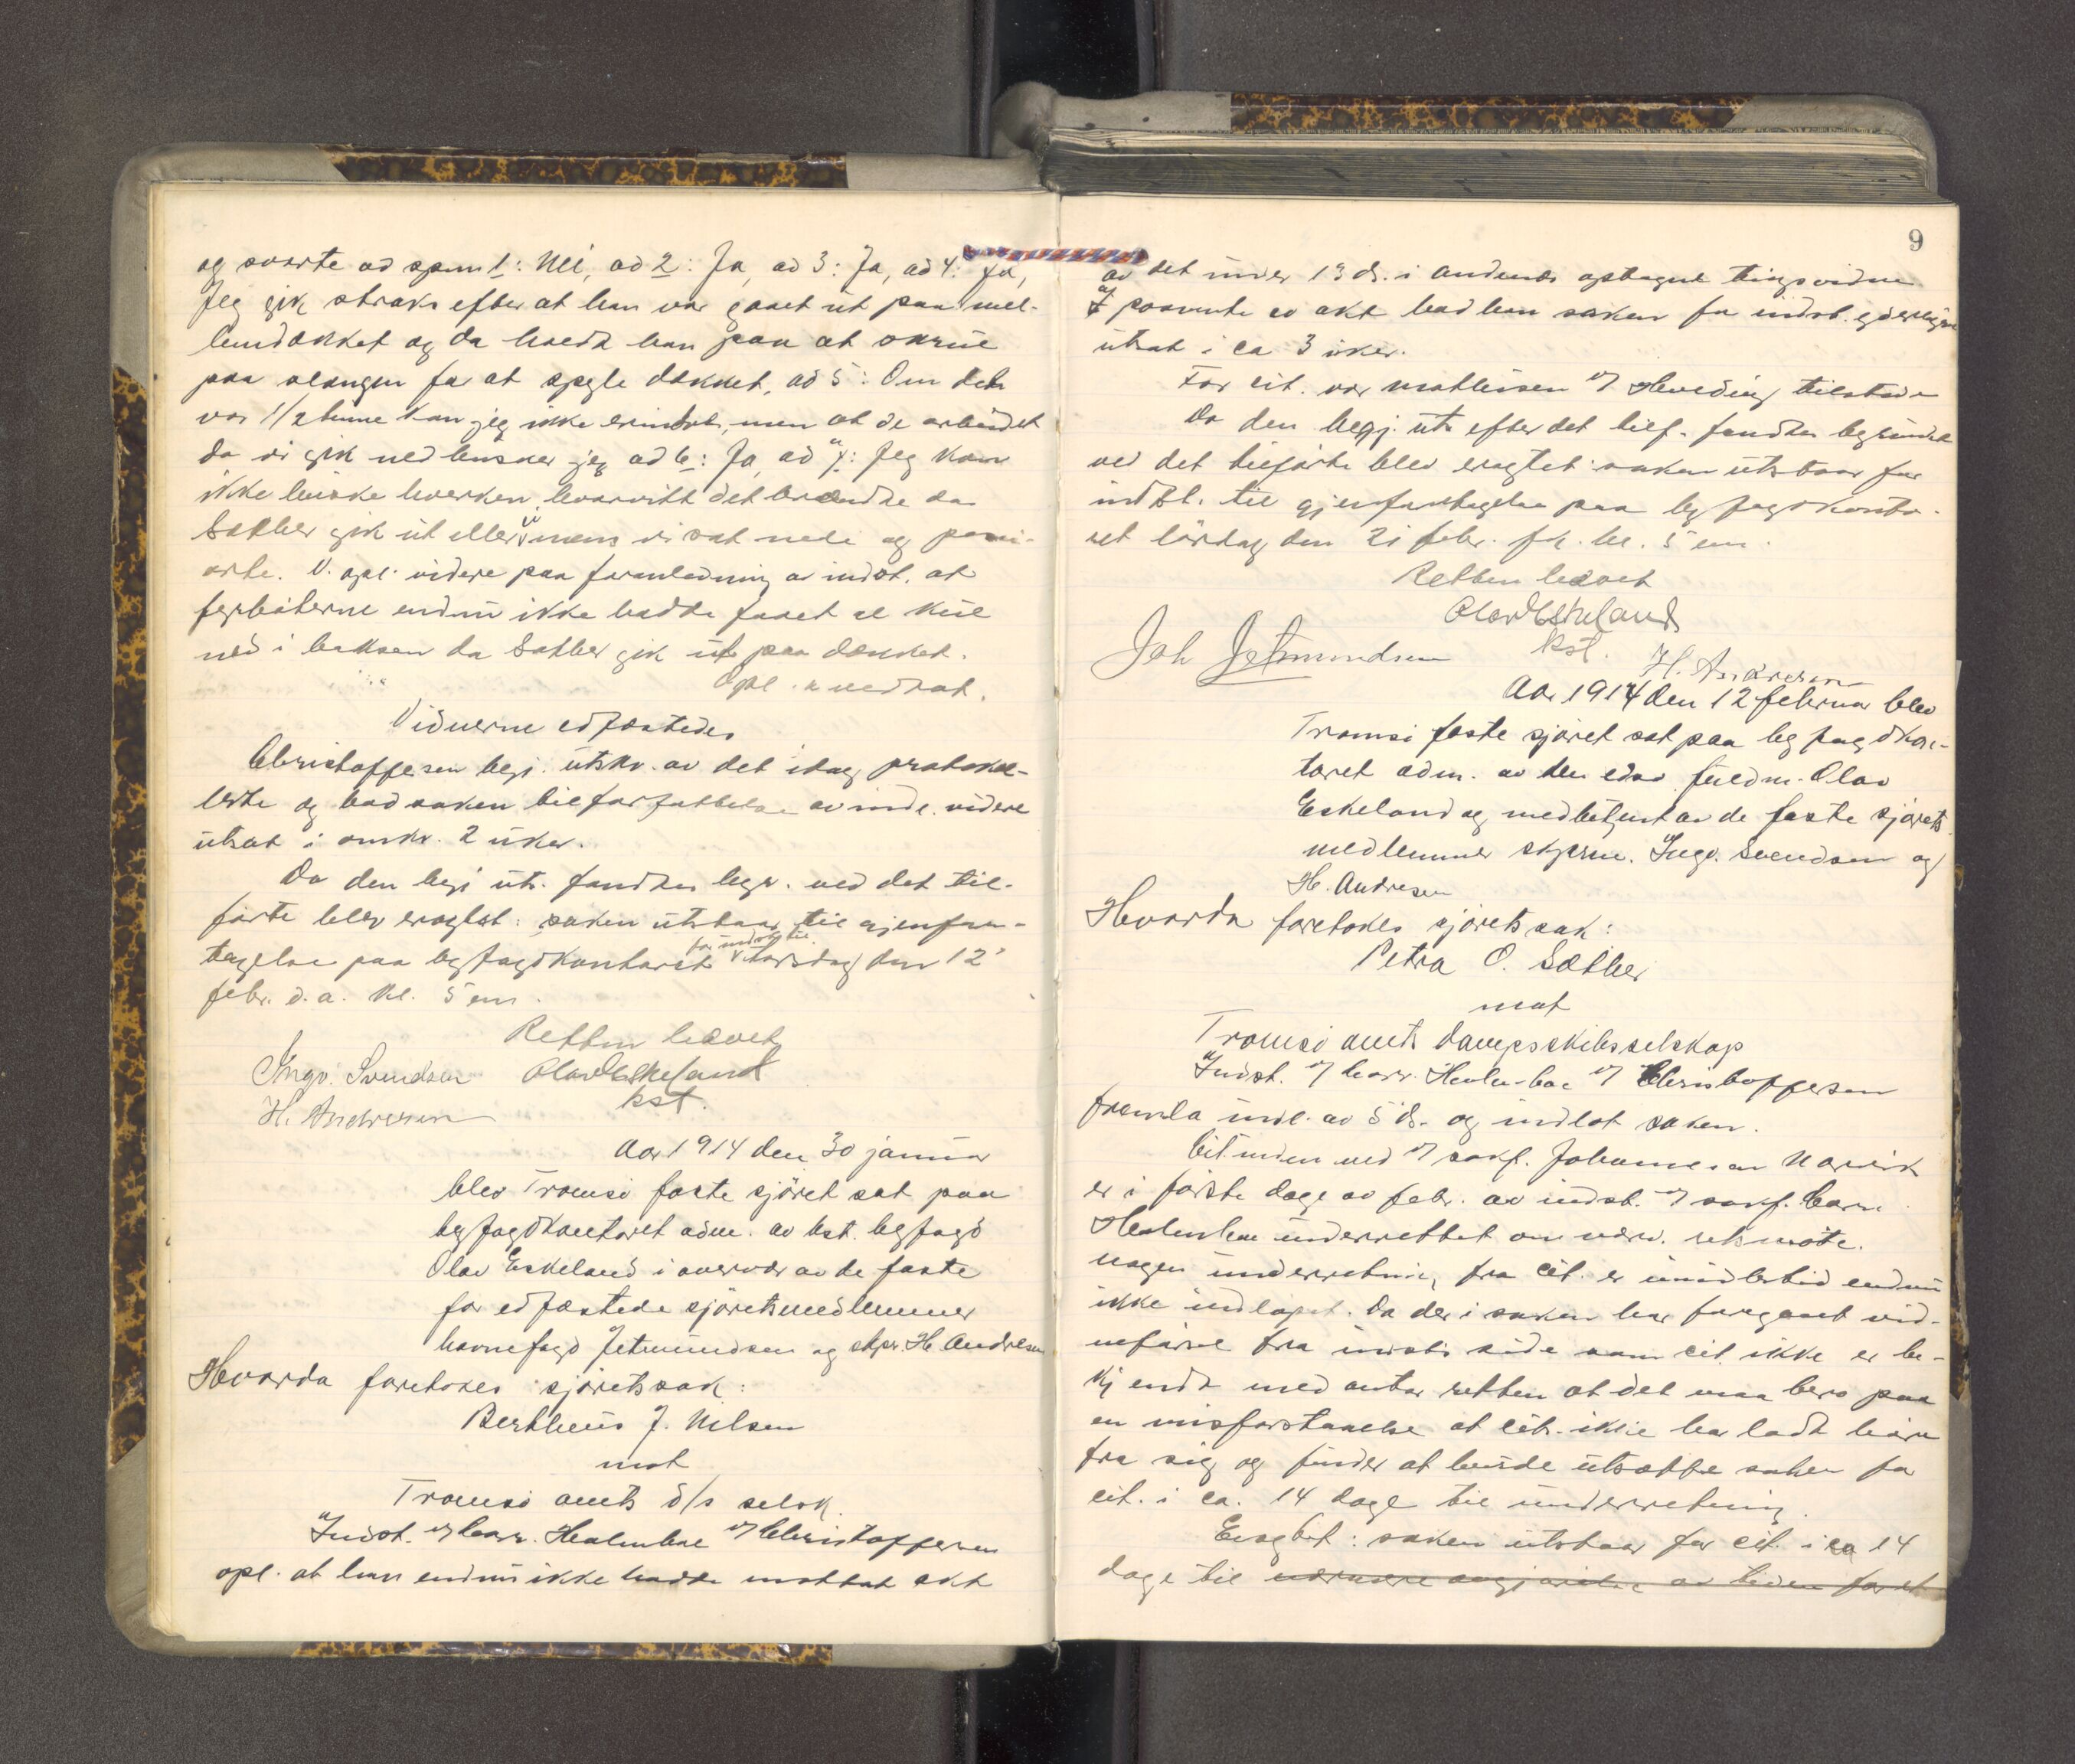 og svarte ad spm 1: Nei, ad 2: Ja, ad 3: Ja, ad 4: Ja,
Jeg gik straks efter at han var gaaet ut paa mel-
lemdækket og da holdt han paa at skrue
paa slangen for at spyle dækket, ad 5: Om det
var 1/2 time kan jeg ikke erindre, men at de arbeidet
da vi gik ned husker jeg ad 6: Ja, ad 7: Jeg kan
ikke huske hverken hvorvidt det brændte da
Sæther gik ut eller mens vi sat nede og
V. opl. videre paa foranledning av indst. at
fyrbøterne endnu ikke hadde faaet al kul
ned i baksen da Sæther gik ut paa dækket.
Opl. vedtat.
Vidnerne edfæstedes
Christoffersen begj. utskr. av det idag protokol-
lerte og bad saken til forfattelse av indl. videre
utsat i omkr. 2 uker.
Da den begj uts. fandtes begr. ved det til-
førte blev eragtet: saken utstaar til gjenfore-
for indst. til
tagelse paa byfogdkontoret torsdag den 12'
febr. d.a. kl. 5 em.
Retten hævet
Ingv. Svendsen Olav Eskeland
H. Andresen kst.
Aar 1914 den 30 januar
blev Tromsø faste sjøret sat paa
byfogdkontoret adm. av kst. byfogd
Olav Eskeland i overvær av de faste
før edfæstede sjøretsmedlemmer
havnefogd Jetmundsen og skpr. H. Andresen
Hvorda foretokes sjøretssak:
Bertheus J. Nilsen
mot
Tromsø amts d/s selsk.
Indst. Holmboe Christoffersen
opl. at han endnu ikke hadde mottat akt
9
av det under 13 ds. i Andenes optagne tingsvidne
paavente av akt bad han saken for indst.
utsat i ca 3 uker.
For cit. var Mathisen Hveding tilstede
Da den begj. uts. efter det tilf. fandtes begrundet
ved det tilførte blev eragtet: saken utstaar for
indst. til gjenforetagelse paa byfogdkonto-
ret lørdag den 21 febr. kl. 5 em.
Retten hævet
Olav Eskeland
Joh Jetmundsen kst.
H. Andresen
Aar 1914 den 12 februar blev
Tromsø faste sjøret sat paa byfogdkon-
toret adm. av den edsv. fuldm. Olav
Eskeland og medbetjent av de faste sjørets-
medlemmer skprne. Ingv. Svendsen og
H. Andresen
Hvorda foretokes sjøretssak:
Petra O. Sæther
mot
Tromsø amts dampskibsselskap
Indst. Holmboe Christoffersen
fremla indl. av 5 ds. og indlot saken.
Citinden ved sakf. Johannesen Narvik
er i første dage av febr. av indst. sakf.
Holmboe underrettet om nærv. retsmøte.
nogen underretning fra cit. er imidlertid endnu
ikke indløpet. Da der i saken har foregaat vid-
neførsel fra indst.s side som cit. ikke er be-
kjendt med antar retten at det maa bero paa
en misforstaaelse at cit. ikke har ladt høre
fra sig og finder at burde utsætte saken for
cit. i ca. 14 dage til underretning.
Eragtet: saken utstaar for cit. i ca 14
dage til